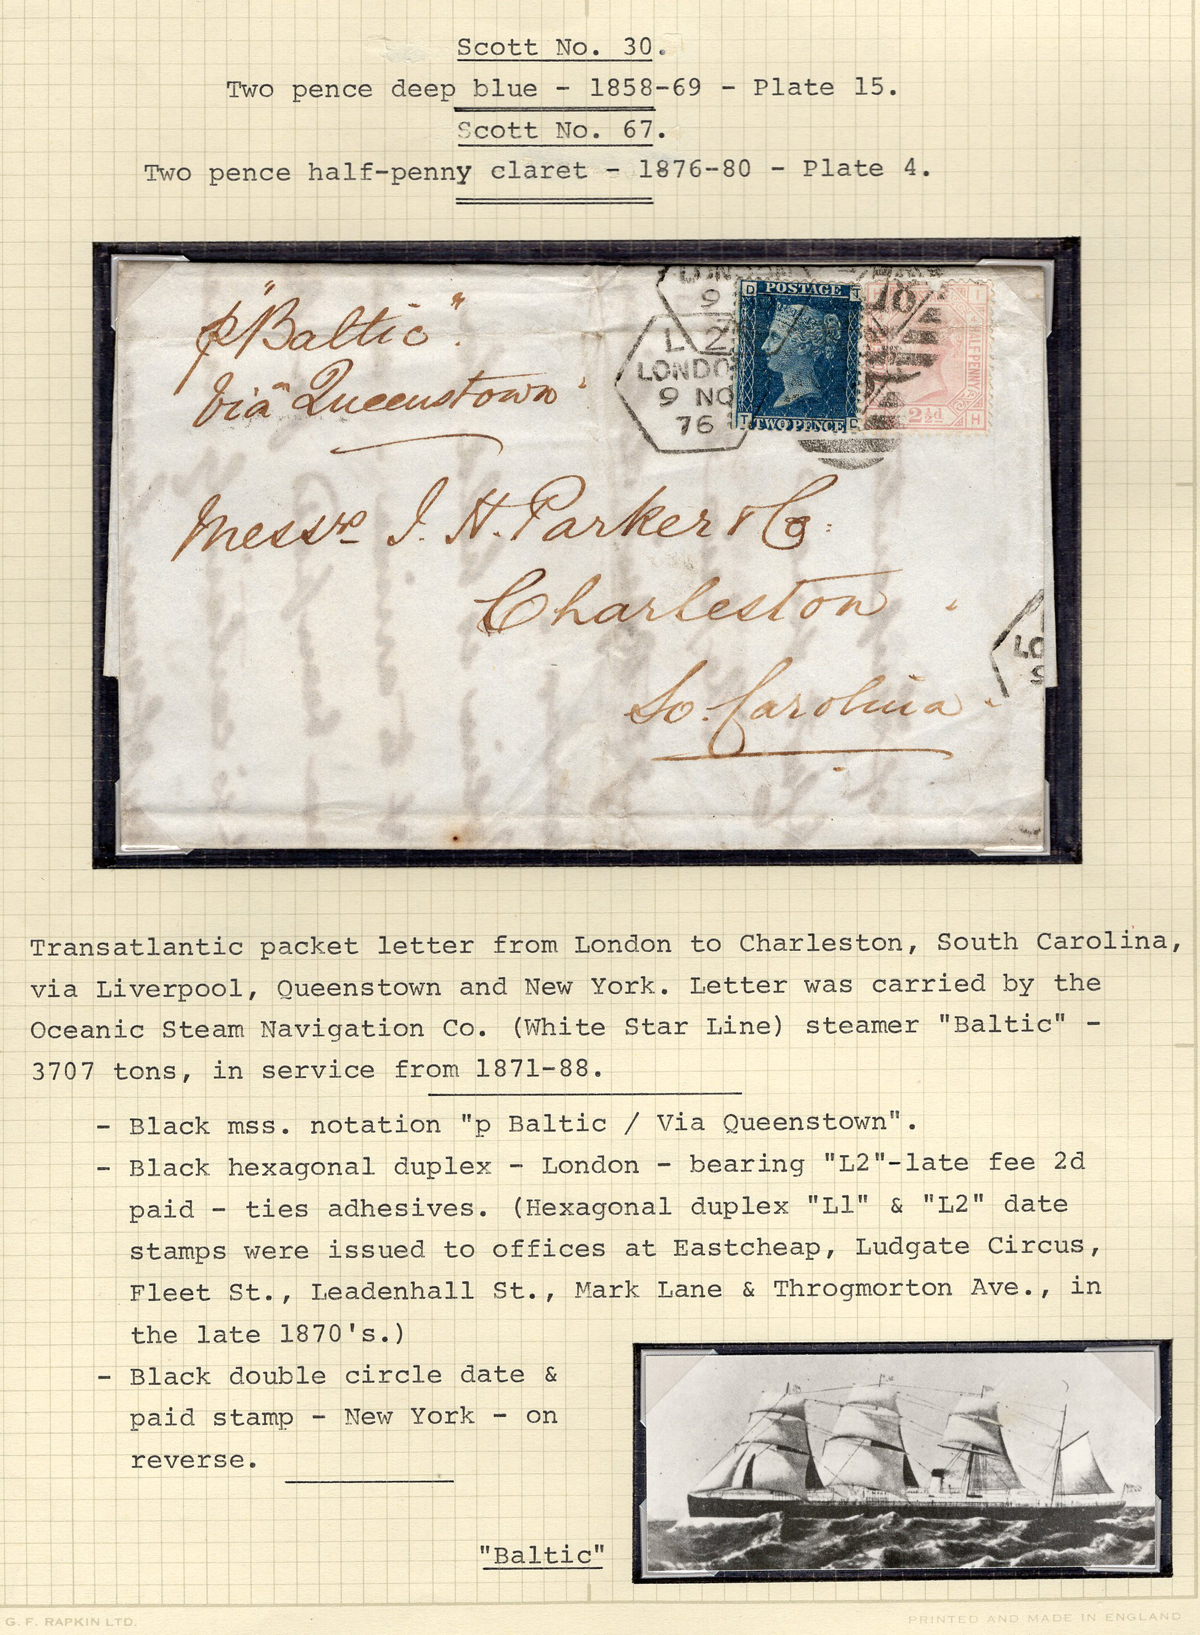 Scott No. 30.
Two pence deep blue - 1858-69 - Plate 15.
Scott No. 67.
Two pence half-penny claret - 1876-80 - Plate 4.
p "Baltic".
Via "Queenstown"
LONDON
9
18
L 2
LONDO
9 NO
76
D POSTAGE T
T TWO PENCE D
HALF-PENNY
2½d H
Messrs J. H. Parker & Co:
Charleston
So. Carolina.
LO
9
Transatlantic packet letter from London to Charleston, South Carolina,
via Liverpool, Queenstown and New York. Letter was carried by the
Oceanic Steam Navigation Co. (White Star Line) steamer "Baltic" -
3707 tons, in service from 1871-88.
- Black mss. notation "p Baltic / Via Queenstown".
- Black hexagonal duplex - London - bearing "L2"-late fee 2d
paid - ties adhesives. (Hexagonal duplex "L1" & "L2" date
stamps were issued to offices at Eastcheap, Ludgate Circus,
Fleet St., Leadenhall St., Mark Lane & Throgmorton Ave., in
the late 1870's.)
- Black double circle date &
paid stamp - New York - on
reverse.
"Baltic"
G. F. RAPKIN LTD.
PRINTED AND MADE IN ENGLAND